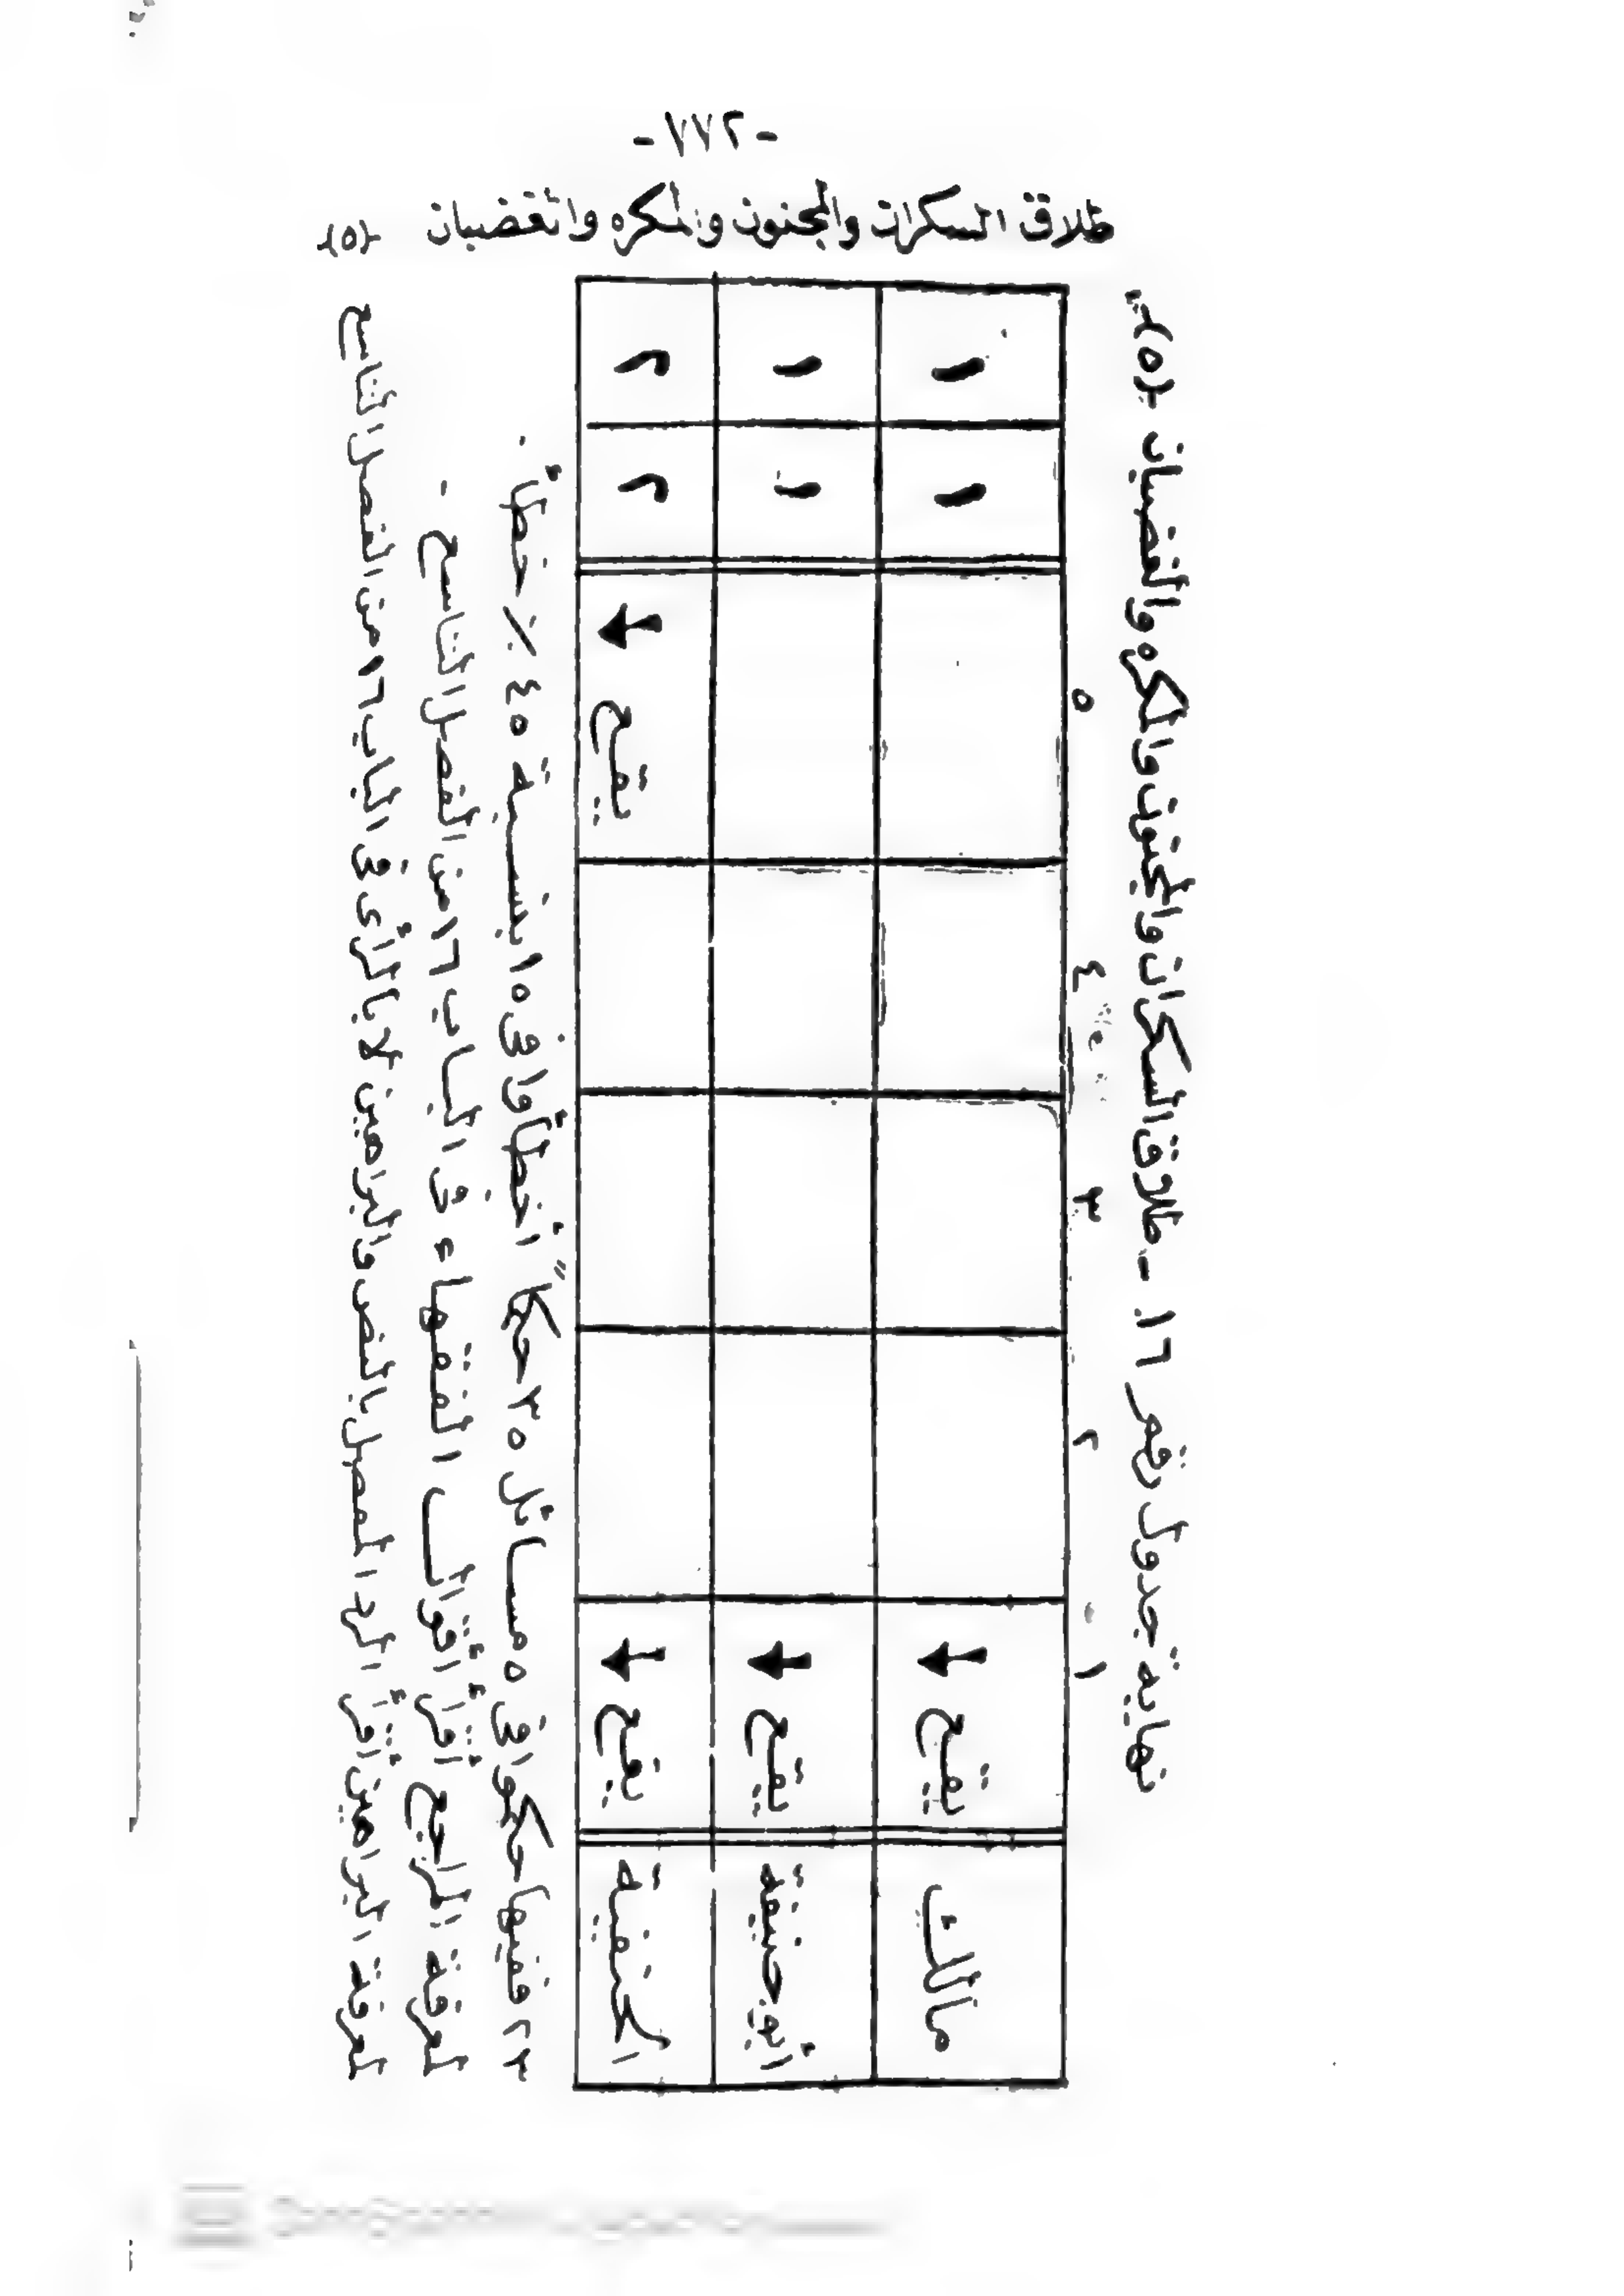 -٧٧٢-
طلاق السكران والمجنون والمكره والغضبان {٥}
نهاية جدول رقم ١٦ - طلاق السكران والمجنون والمكره والغضبان {٥}
١ ٢ ٣ ٤ ٥
مالك يقع ١ ١
أبو حنيفة يقع ١ ١
الحنفية يقع يقع ٢ ٢
٢٣ فقيها حكموا فى ٥ مسائل ٣٥ حكماً أخطأوا فى ١٥ بنسبة ٤٥ ٪ خطأ .
لمعرفة الراجح اقرأ أقوال الفقهاء فى الباب ١٦ من الفصل التاسع .
لمعرفة البراهين اقرأ الرد المفصل بالنص والبراهين لا بالرأى فى الباب ١٦ من الفصل التاسع